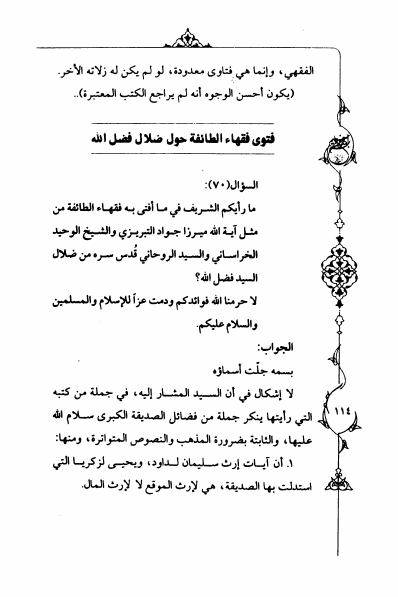 الفقهي، وإنما هي فتاوى معدودة، لو لم يكن له زلاته الأخر.
(يكون أحسن الوجوه أنه لم يراجع الكتب المعتبرة)..
فتوى فقهاء الطائفة حول ضلال فضل الله
السؤال(٧٠):
ما رأيكم الشريف في ما أفتى به فقهاء الطائفة من
مثل آية الله ميرزا جواد التبريزي والشيخ الوحيد
الخراساني والسيد الروحاني قُدس سره من ضلال
السيد فضل الله؟
لا حرمنا الله فوائدكم ودمت عزاً للإسلام والمسلمين
والسلام عليكم.
الجواب:
بسمه جلّت أسماؤه
لا إشكال في أن السيد المشار إليه، في جملة من كتبه
التي رأيتها ينكر جملة من فضائل الصديقة الكبرى سلام الله
عليها، والثابتة بضرورة المذهب والنصوص المتواترة، ومنها:
١. أن آيات إرث سليمان لداود، ويحيى لزكريا التي
استدلت بها الصديقة، هي لإرث الموقع لا لإرث المال.
١١٤